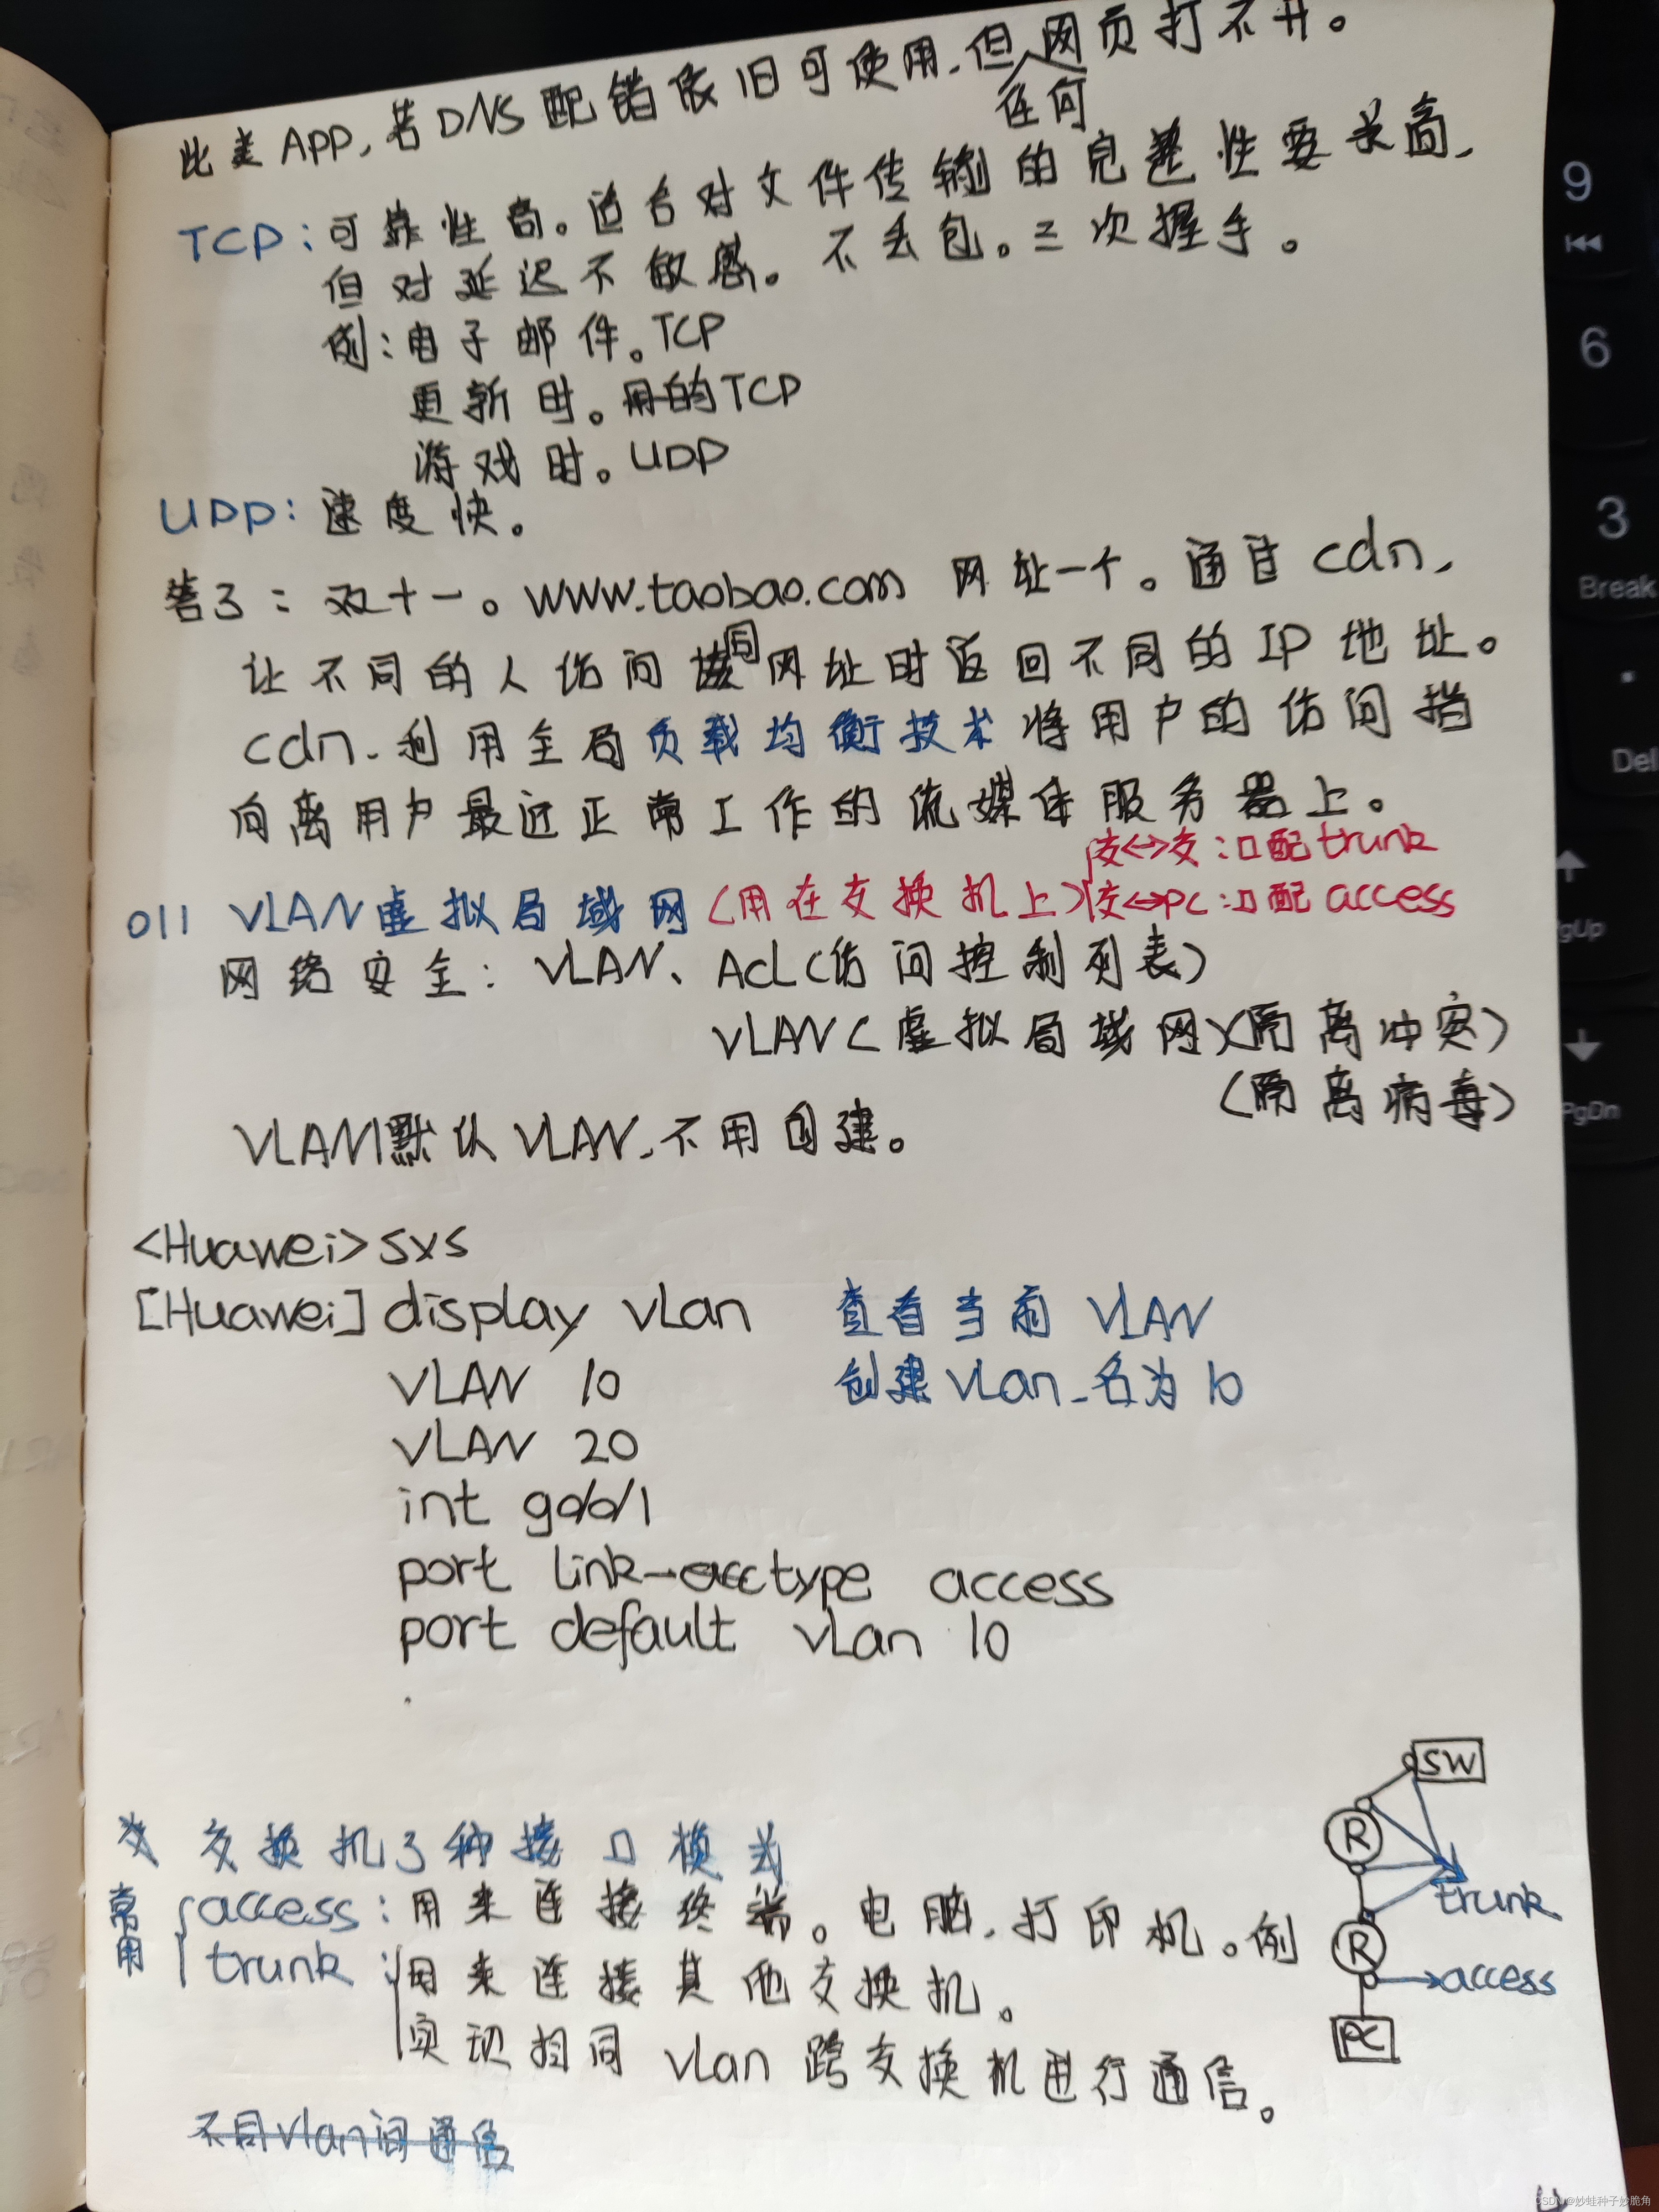 此类APP,若DNS配错依旧可使用,但任何网页打不开。
TCP:可靠性高。适合对文件传输的完整性要求高,
但对延迟不敏感。不丢包。三次握手。
例:电子邮件。TCP
更新时。用的TCP
游戏时。UDP
UDP:速度快。
答3:双十一。www.taobao.com 网址一个。通过cdn,
让不同的人访问该同网址时返回不同的IP地址。
cdn、利用全局负载均衡技术将用户的访问指
向离用户最近正常工作的流媒体服务器上。
交<->交:口配trunk
011 VLAN虚拟局域网(用在交换机上) 交<->PC:口配access
网络安全:VLAN、ACL(访问控制列表)
VLAN(虚拟局域网)(隔离冲突)
(隔离病毒)
VLAN1默认VLAN,不用创建。
<Huawei>sys
[Huawei] display vlan 查看当前VLAN
VLAN 10 创建vlan,名为10
VLAN 20
int g0/0/1
port link-type access
port default vlan 10
SW
R
trunk
R
access
PC
交换机3种接口模式
常用
access:用来连接终端。电脑,打印机。例
trunk:用来连接其他交换机。
实现相同vlan跨交换机进行通信。
不同vlan间通信
9
6
3
Break
Del
PgUp
PgDn
CSDN @妙蛙种子妙脆角